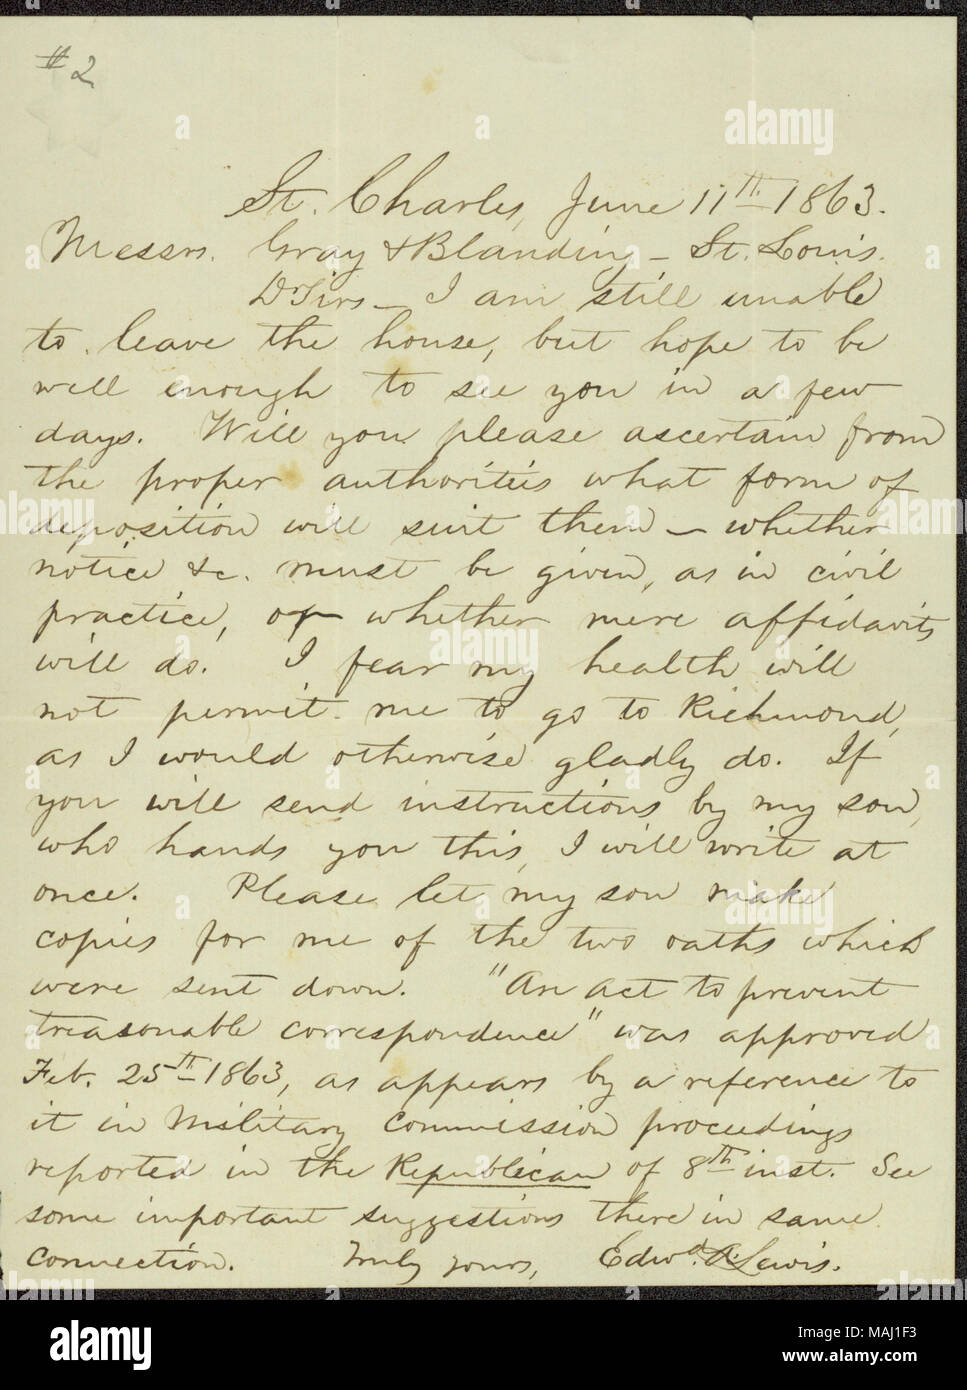 #2
St. Charles, June 11th 1863.
Messrs. Gray & Blanding – St. Louis.
D Sirs – I am still unable
to leave the house, but hope to be
well enough to see you in a few
days. Will you please ascertain from
the proper authorities what form of
deposition will suit them – whether
notice &c. must be given, as in civil
practice, or whether mere affidavits
will do. I fear my health will
not permit me to go to Richmond,
as I would otherwise gladly do. If
you will send instructions by my son,
who hands you this, I will write at
once. Please let my son make
copies for me of the two oaths which
were sent down. "An act to prevent
treasonable correspondence" was approved
Feb. 25th 1863, as appears by a reference to
it in Military Commission proceedings
reported in the Republican of 8th inst. See
some important suggestions there in same
connection. Truly yours, Edwd. A. Lewis.
alamy
Image ID: MAJ1F3
www.alamy.com